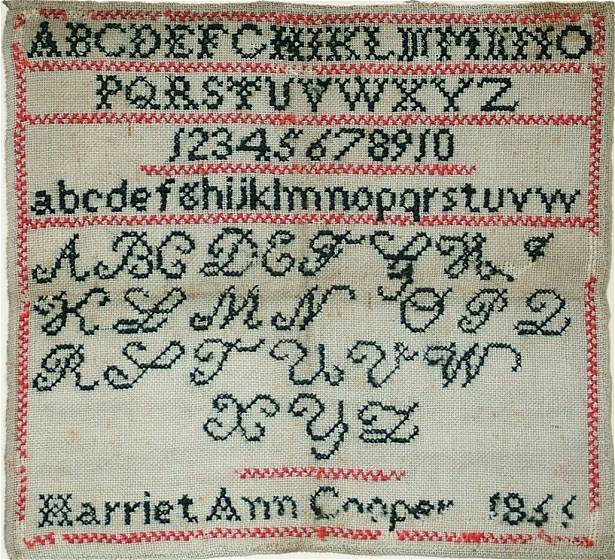 ABCDEFG
PQRSTUVWXYZ
12345678910
abcdefghijklmnopqrstuvw
A B C D E F G H
K L M N O P Q
R S T U V W
X Y Z
Harriet Ann Cooper